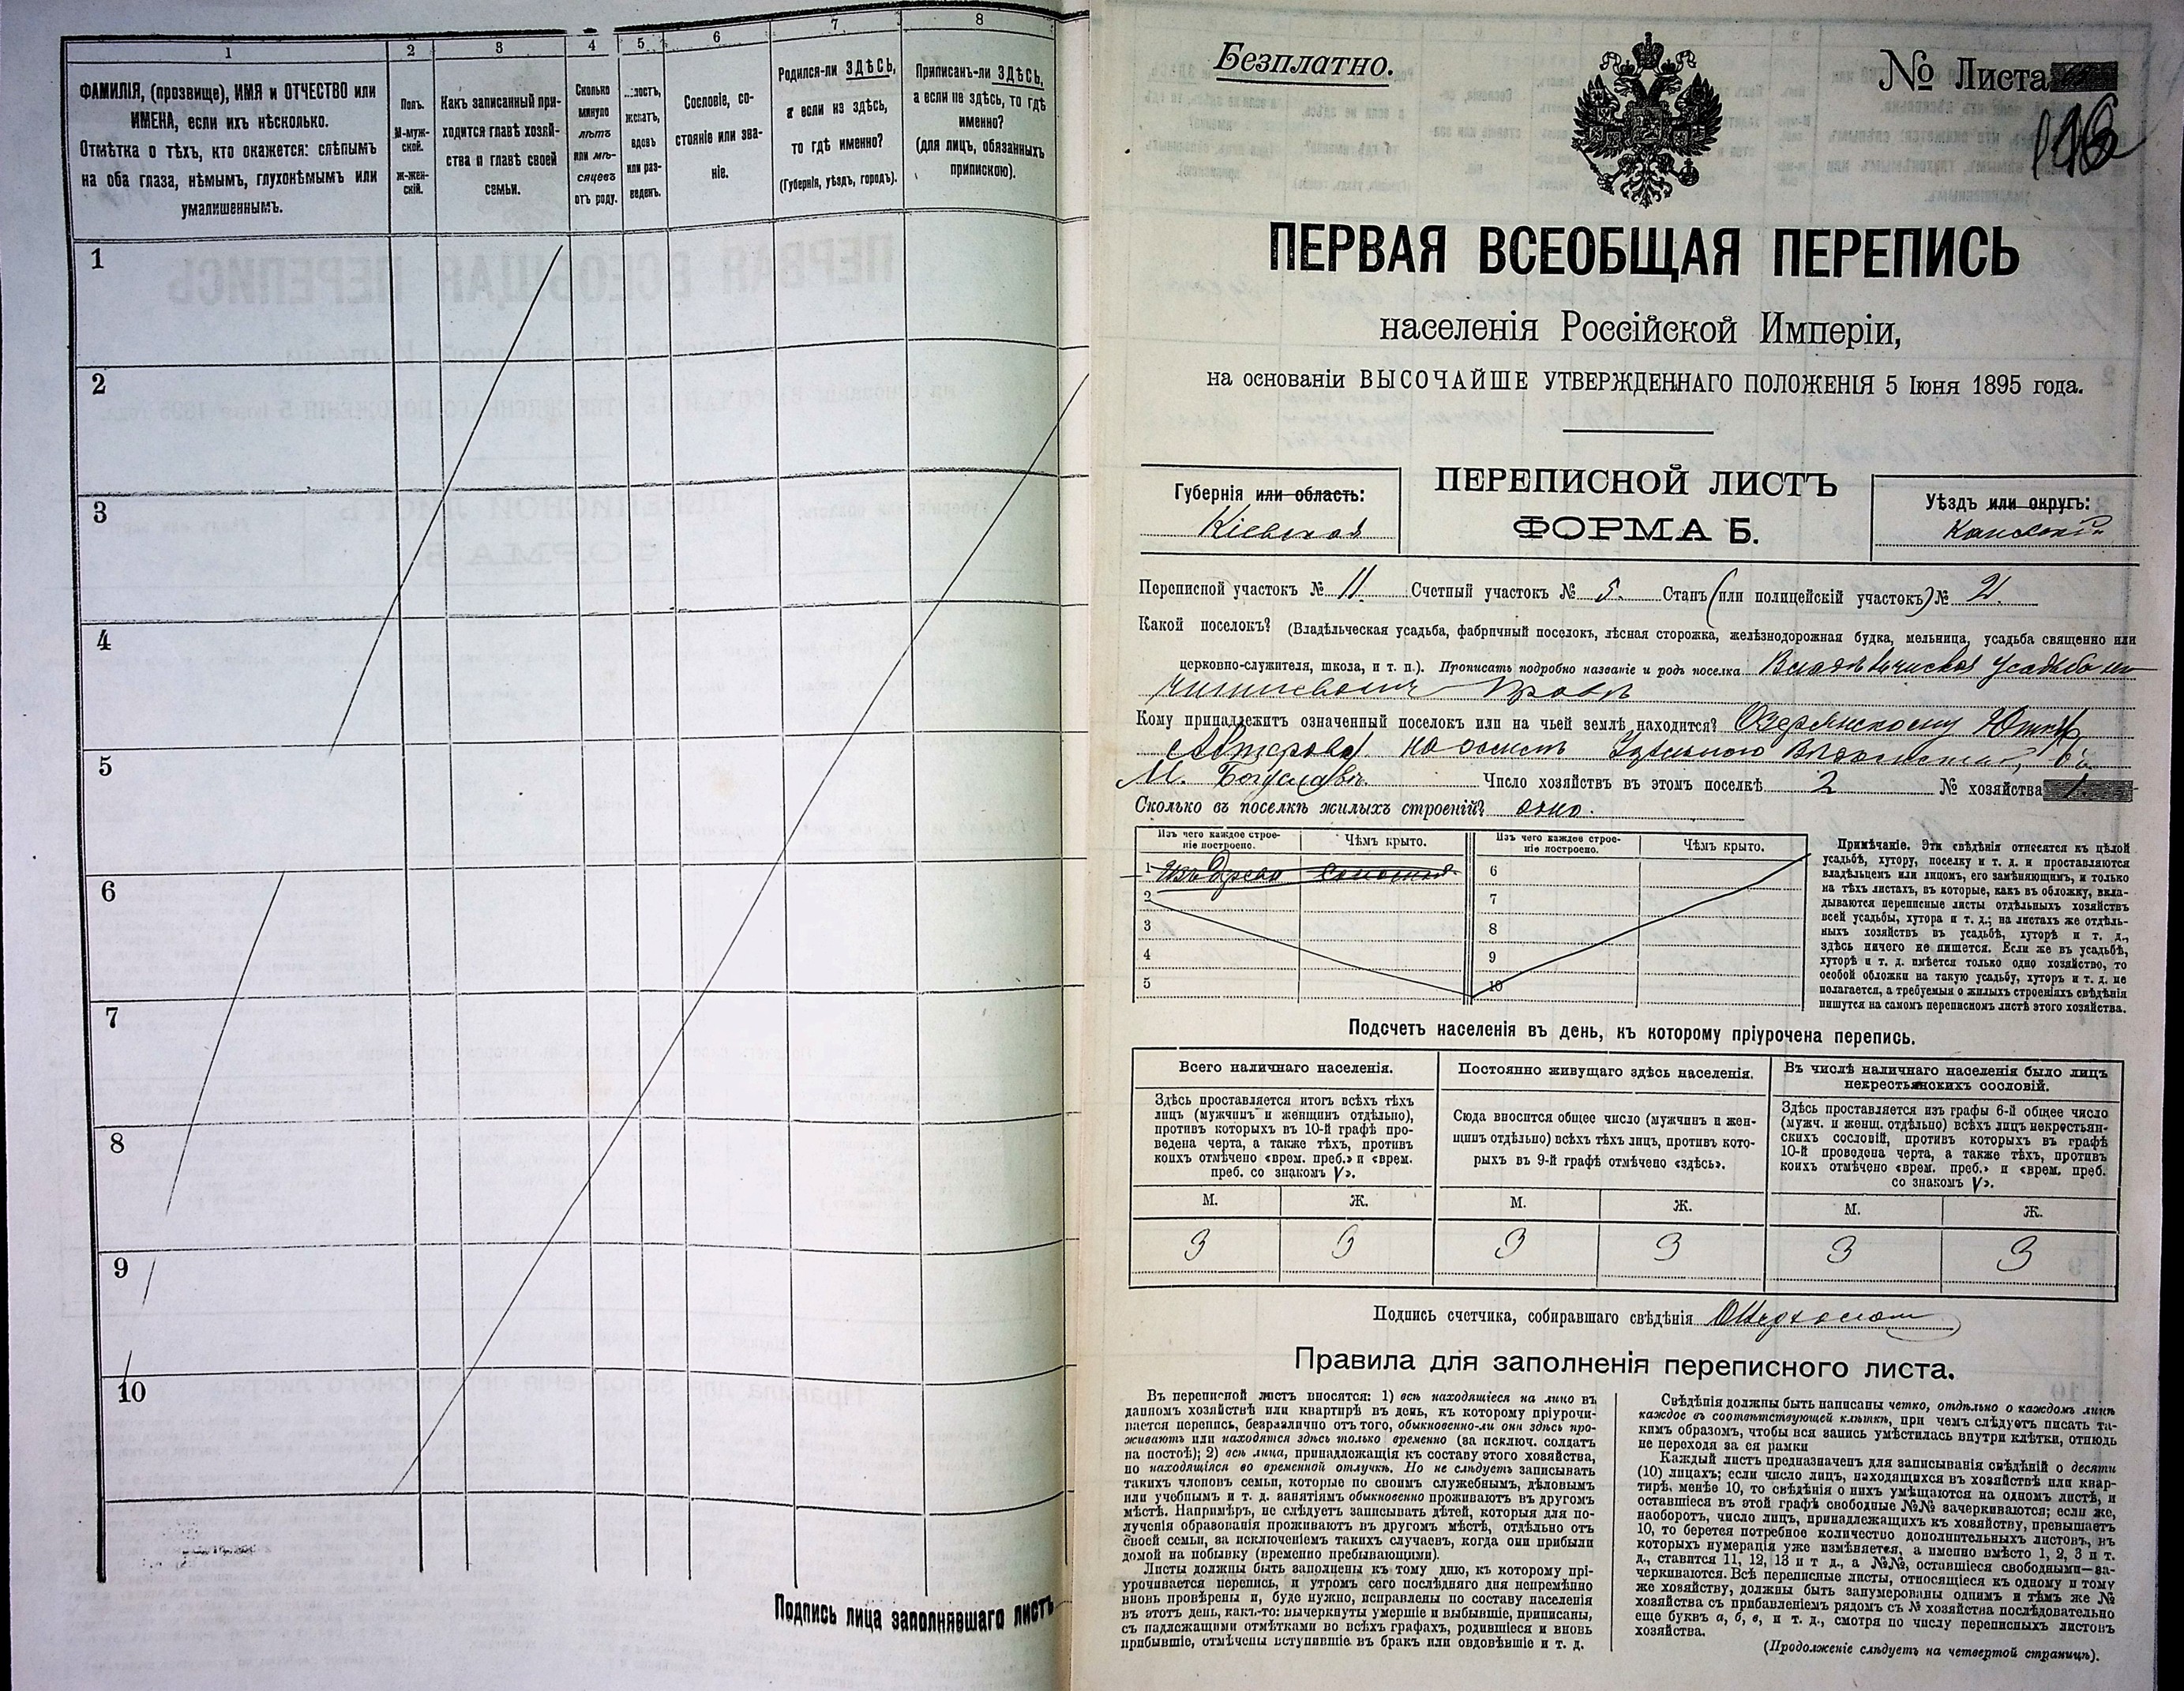 1
2
3
4
5
6
7
8
ФАМИЛІЯ, (прозвище), ИМЯ и ОТЧЕСТВО или
ИМЕНА, если ихъ нѣсколько.
Отмѣтка о тѣхъ, кто окажется: слѣпымъ
на оба глаза, нѣмымъ, глухонѣмымъ или
умалишеннымъ.
Полъ.
М-муж-
ской.
Ж-жен-
скій.
Какъ записанный при-
ходится главѣ хозяй-
ства и главѣ своей
семьи.
Сколько
минуло
лѣтъ
или мѣ-
сяцевъ
отъ роду.
женатъ,
вдовъ
или раз-
веденъ.
Сословіе, со-
стояніе или зва-
ніе.
Родился-ли ЗДѢСЬ,
а если не здѣсь,
то гдѣ именно?
(Губернія, уѣздъ, городъ).
Приписанъ-ли ЗДѢСЬ,
а если не здѣсь, то гдѣ
именно?
(для лицъ, обязанныхъ
припискою).
1
2
3
4
5
6
7
8
9
10
Подпись лица заполнявшаго листъ
Безплатно.
№ Листа
ПЕРВАЯ ВСЕОБЩАЯ ПЕРЕПИСЬ
населенія Россійской Имперіи,
на основаніи ВЫСОЧАЙШЕ УТВЕРЖДЕННАГО ПОЛОЖЕНІЯ 5 Іюня 1895 года.
Губернія или область:
Кіевская
ПЕРЕПИСНОЙ ЛИСТЪ
ФОРМА Б.
Уѣздъ или округъ:
Каневскій
Переписной участокъ № 11. Счетный участокъ № 5. Станъ (или полицейскій участокъ) № 2.
Какой поселокъ? (Владѣльческая усадьба, фабричный поселокъ, лѣсная сторожка, желѣзнодорожная будка, мельница, усадьба священно или
церковно-служителя, школа, и т. п.). Прописать подробно названіе и родъ поселка Владѣльческая усадьба
Кому принадлежитъ означенный поселокъ или на чьей землѣ находится?
М. Богуславѣ Число хозяйствъ въ этомъ поселкѣ 2 № хозяйства 1.
Сколько въ поселкѣ жилыхъ строеній? одно.
Изъ чего каждое строе-
ніе построено.
Чѣмъ крыто.
Изъ чего каждое строе-
ніе построено.
Чѣмъ крыто.
1 Изъ дерева
2
3
4
5
6
7
8
9
10
Примѣчаніе. Эти свѣдѣнія относятся къ цѣлой
усадьбѣ, хутору, поселку и т. д. и проставляются
владѣльцемъ или лицомъ, его замѣняющимъ, и только
на тѣхъ листахъ, въ которые, какъ въ обложку, вкла-
дываются переписные листы отдѣльныхъ хозяйствъ
всей усадьбы, хутора и т. д.; на листахъ же отдѣль-
ныхъ хозяйствъ въ усадьбѣ, хуторѣ и т. д.,
здѣсь ничего не пишется. Если же въ усадьбѣ,
хуторѣ и т. д. имѣется только одно хозяйство, то
особой обложки на такую усадьбу, хуторъ и т. д. не
полагается, а требуемыя о жилыхъ строеніяхъ свѣдѣнія
пишутся на самомъ переписномъ листѣ этого хозяйства.
Подсчетъ населенія въ день, къ которому пріурочена перепись.
Всего наличнаго населенія.
Здѣсь проставляется итогъ всѣхъ тѣхъ
лицъ (мужчинъ и женщинъ отдѣльно),
противъ которыхъ въ 10-й графѣ про-
ведена черта, а также тѣхъ, противъ
коихъ отмѣчено «врем. преб.» и «врем.
преб. со знакомъ V».
Постоянно живущаго здѣсь населенія.
Сюда вносится общее число (мужчинъ и жен-
щинъ отдѣльно) всѣхъ тѣхъ лицъ, противъ кото-
рыхъ въ 9-й графѣ отмѣчено «здѣсь».
Въ числѣ наличнаго населенія было лицъ
некрестьянскихъ сословій.
Здѣсь проставляется изъ графы 6-й общее число
(мужч. и женщ. отдѣльно) всѣхъ лицъ некрестьян-
скихъ сословій, противъ которыхъ въ графѣ
10-й проведена черта, а также тѣхъ, противъ
коихъ отмѣчено «врем. преб.» и «врем. преб.
со знакомъ V».
М. Ж. М. Ж. М. Ж.
3 3 3 3 3 3
Подпись счетчика, собиравшаго свѣдѣнія
Правила для заполненія переписного листа.
Въ переписной листъ вносятся: 1) всѣ находящіеся на лицо въ
данномъ хозяйствѣ или квартирѣ въ день, къ которому пріурочи-
вается перепись, безразлично отъ того, обыкновенно-ли они здѣсь про-
живаютъ или находятся здѣсь только временно (за исключ. солдатъ
на постоѣ); 2) всѣ лица, принадлежащія къ составу этого хозяйства,
но находящіяся во временной отлучкѣ. Но не слѣдуетъ записывать
такихъ членовъ семьи, которые по своимъ служебнымъ, дѣловымъ
или учебнымъ и т. д. занятіямъ обыкновенно проживаютъ въ другомъ
мѣстѣ. Напримѣръ, не слѣдуетъ записывать дѣтей, которыя для по-
лученія образованія проживаютъ въ другомъ мѣстѣ, отдѣльно отъ
своей семьи, за исключеніемъ такихъ случаевъ, когда они прибыли
домой на побывку (временно пребывающими).
Листы должны быть заполнены къ тому дню, къ которому прі-
урочивается перепись, и утромъ сего послѣдняго дня непремѣнно
вновь провѣрены и, буде нужно, исправлены по составу населенія
въ этотъ день, какъ-то: вычеркнуты умершіе и выбывшіе, приписаны,
съ надлежащими отмѣтками во всѣхъ графахъ, родившіеся и вновь
прибывшіе, отмѣчены вступившіе въ бракъ или овдовѣвшіе и т. д.
Свѣдѣнія должны быть написаны четко, отдѣльно о каждомъ лицѣ
каждое въ соотвѣтствующей клѣткѣ, при чемъ слѣдуетъ писать та-
кимъ образомъ, чтобы вся запись умѣстилась внутри клѣтки, отнюдь
не переходя за ея рамки
Каждый листъ предназначенъ для записыванія свѣдѣній о десяти
(10) лицахъ; если число лицъ, находящихся въ хозяйствѣ или квар-
тирѣ, менѣе 10, то свѣдѣнія о нихъ умѣщаются на одномъ листѣ, и
оставшіеся въ этой графѣ свободные №№ зачеркиваются; если же,
наоборотъ, число лицъ, принадлежащихъ къ хозяйству, превышаетъ
10, то берется потребное количество дополнительныхъ листовъ, въ
которыхъ нумерація уже измѣняется, а именно вмѣсто 1, 2, 3 и т.
д., ставится 11, 12, 13 и т д., а №№, оставшіеся свободными—за-
черкиваются. Всѣ переписные листы, относящіеся къ одному и тому
же хозяйству, должны быть занумерованы однимъ и тѣмъ же №
хозяйства съ прибавленіемъ рядомъ съ № хозяйства послѣдовательно
еще буквъ а, б, в, и т. д., смотря по числу переписныхъ листовъ
хозяйства.
(Продолженіе слѣдуетъ на четвертой страницѣ).